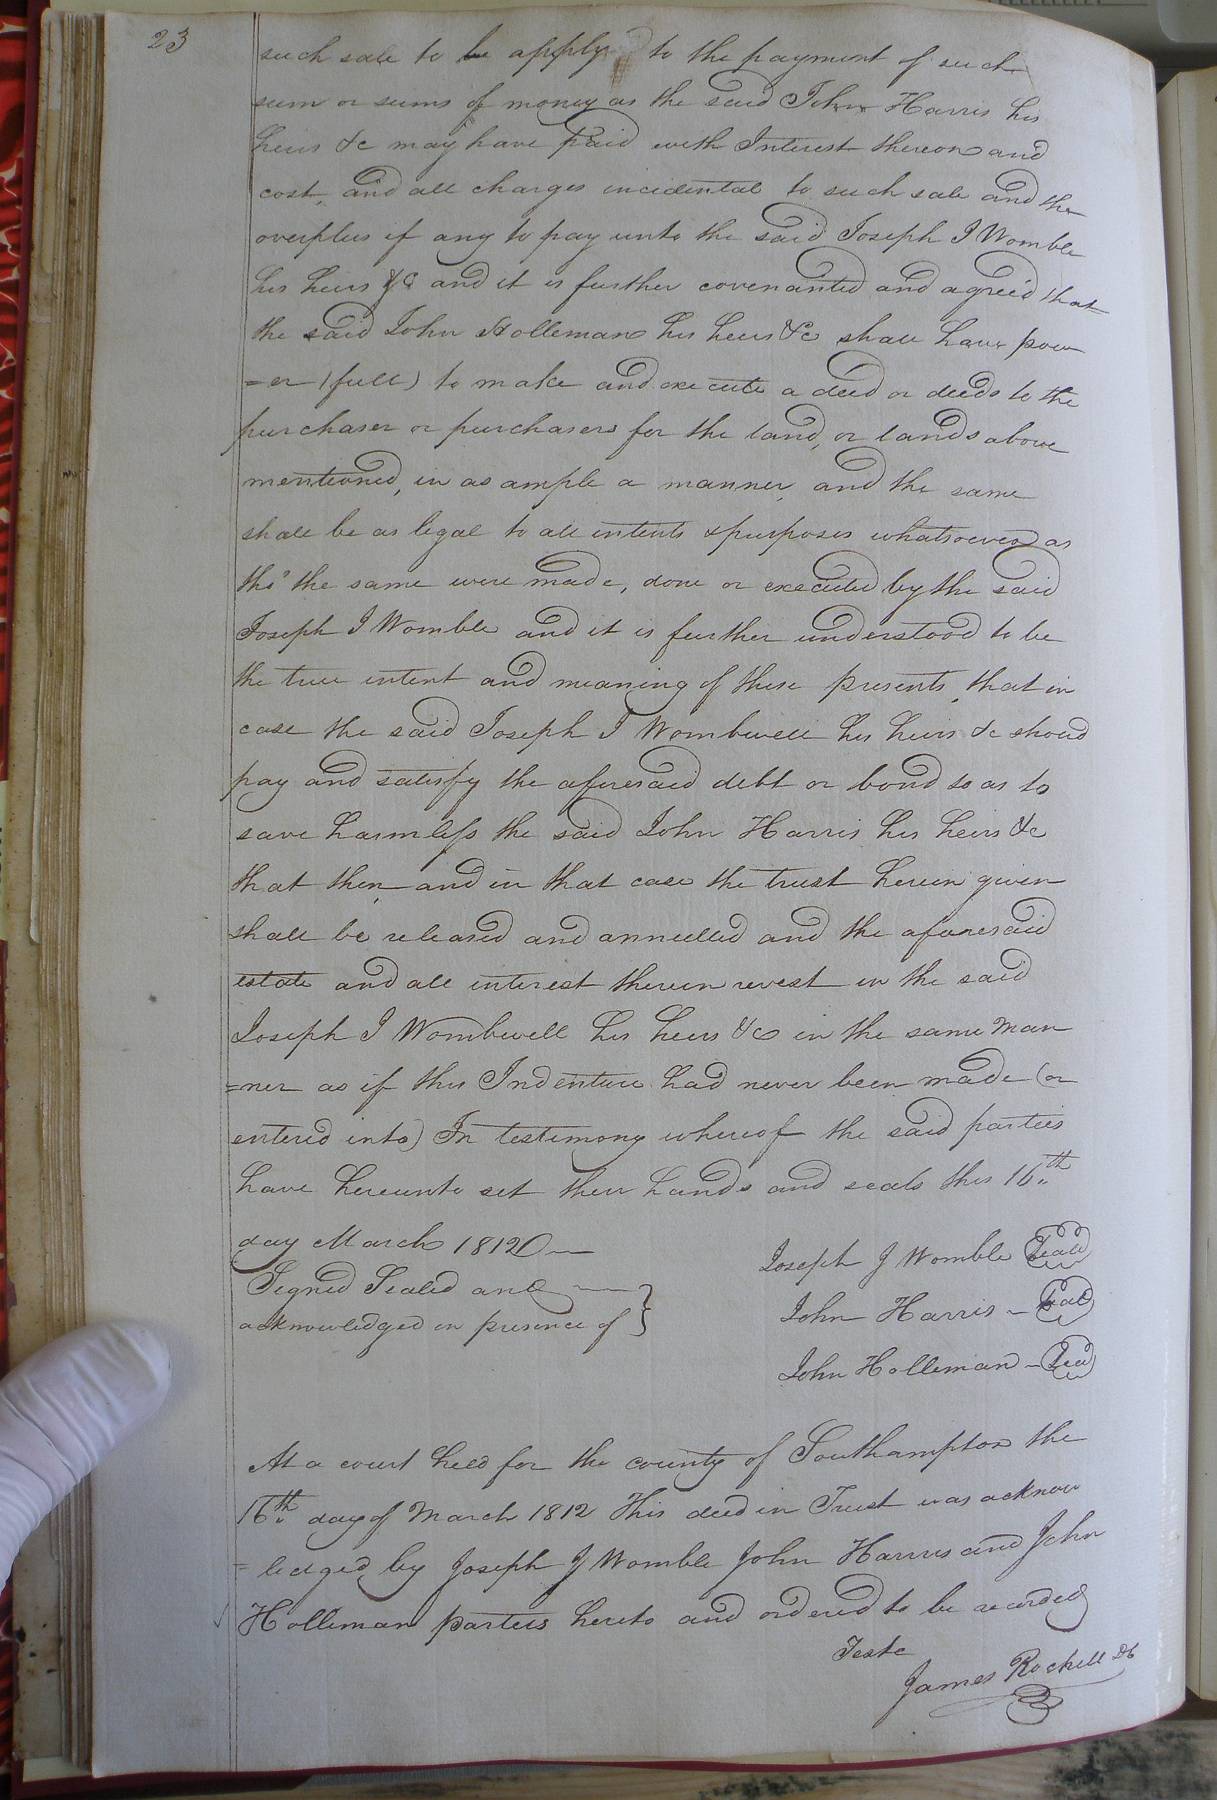 23
such sale to be apply to the payment of such
sum or sums of money as the said John Harris his
heirs &c may have paid with Interest thereon and
cost, and all charges incidental to such sale and the
overplus if any to pay unto the said Joseph J Womble
his heirs &c and it is further covenanted and agreed that
the said John Holleman his heirs &c shall have pow
=er (full) to make and execute a deed or deeds to the
purchaser or purchasers for the land, or lands above
mentioned, in as ample a manner, and the same
shall be as legal to all intents & purposes whatsoever as
tho' the same were made, done or executed by the said
Joseph J Womble and it is further understood to be
the true intent and meaning of these presents, that in
case the said Joseph J Wombwell his heirs &c should
pay and satisfy the aforesaid debt or bond so as to
save harmless the said John Harris his heirs &c
that then and in that case the trust herein given
shall be released and annulled and the aforesaid
estate and all interest therein revest in the said
Joseph J Wombwell his heirs &c in the same man
=ner as if this Indenture had never been made (or
entered into) In testimony whereof the said parties
have hereunto set their hands and seals this 16th
day March 1812
Joseph J Womble Seal
Signed Sealed and
acknowledged in presence of }
John Harris - Seal
John Holleman - Seal
At a court held for the county of Southampton the
16th day of March 1812 This deed in Trust was acknow
=ledged by Joseph J Womble John Harris and John
Holliman parties hereto and ordered to be recorded
Teste
James Rochell DC